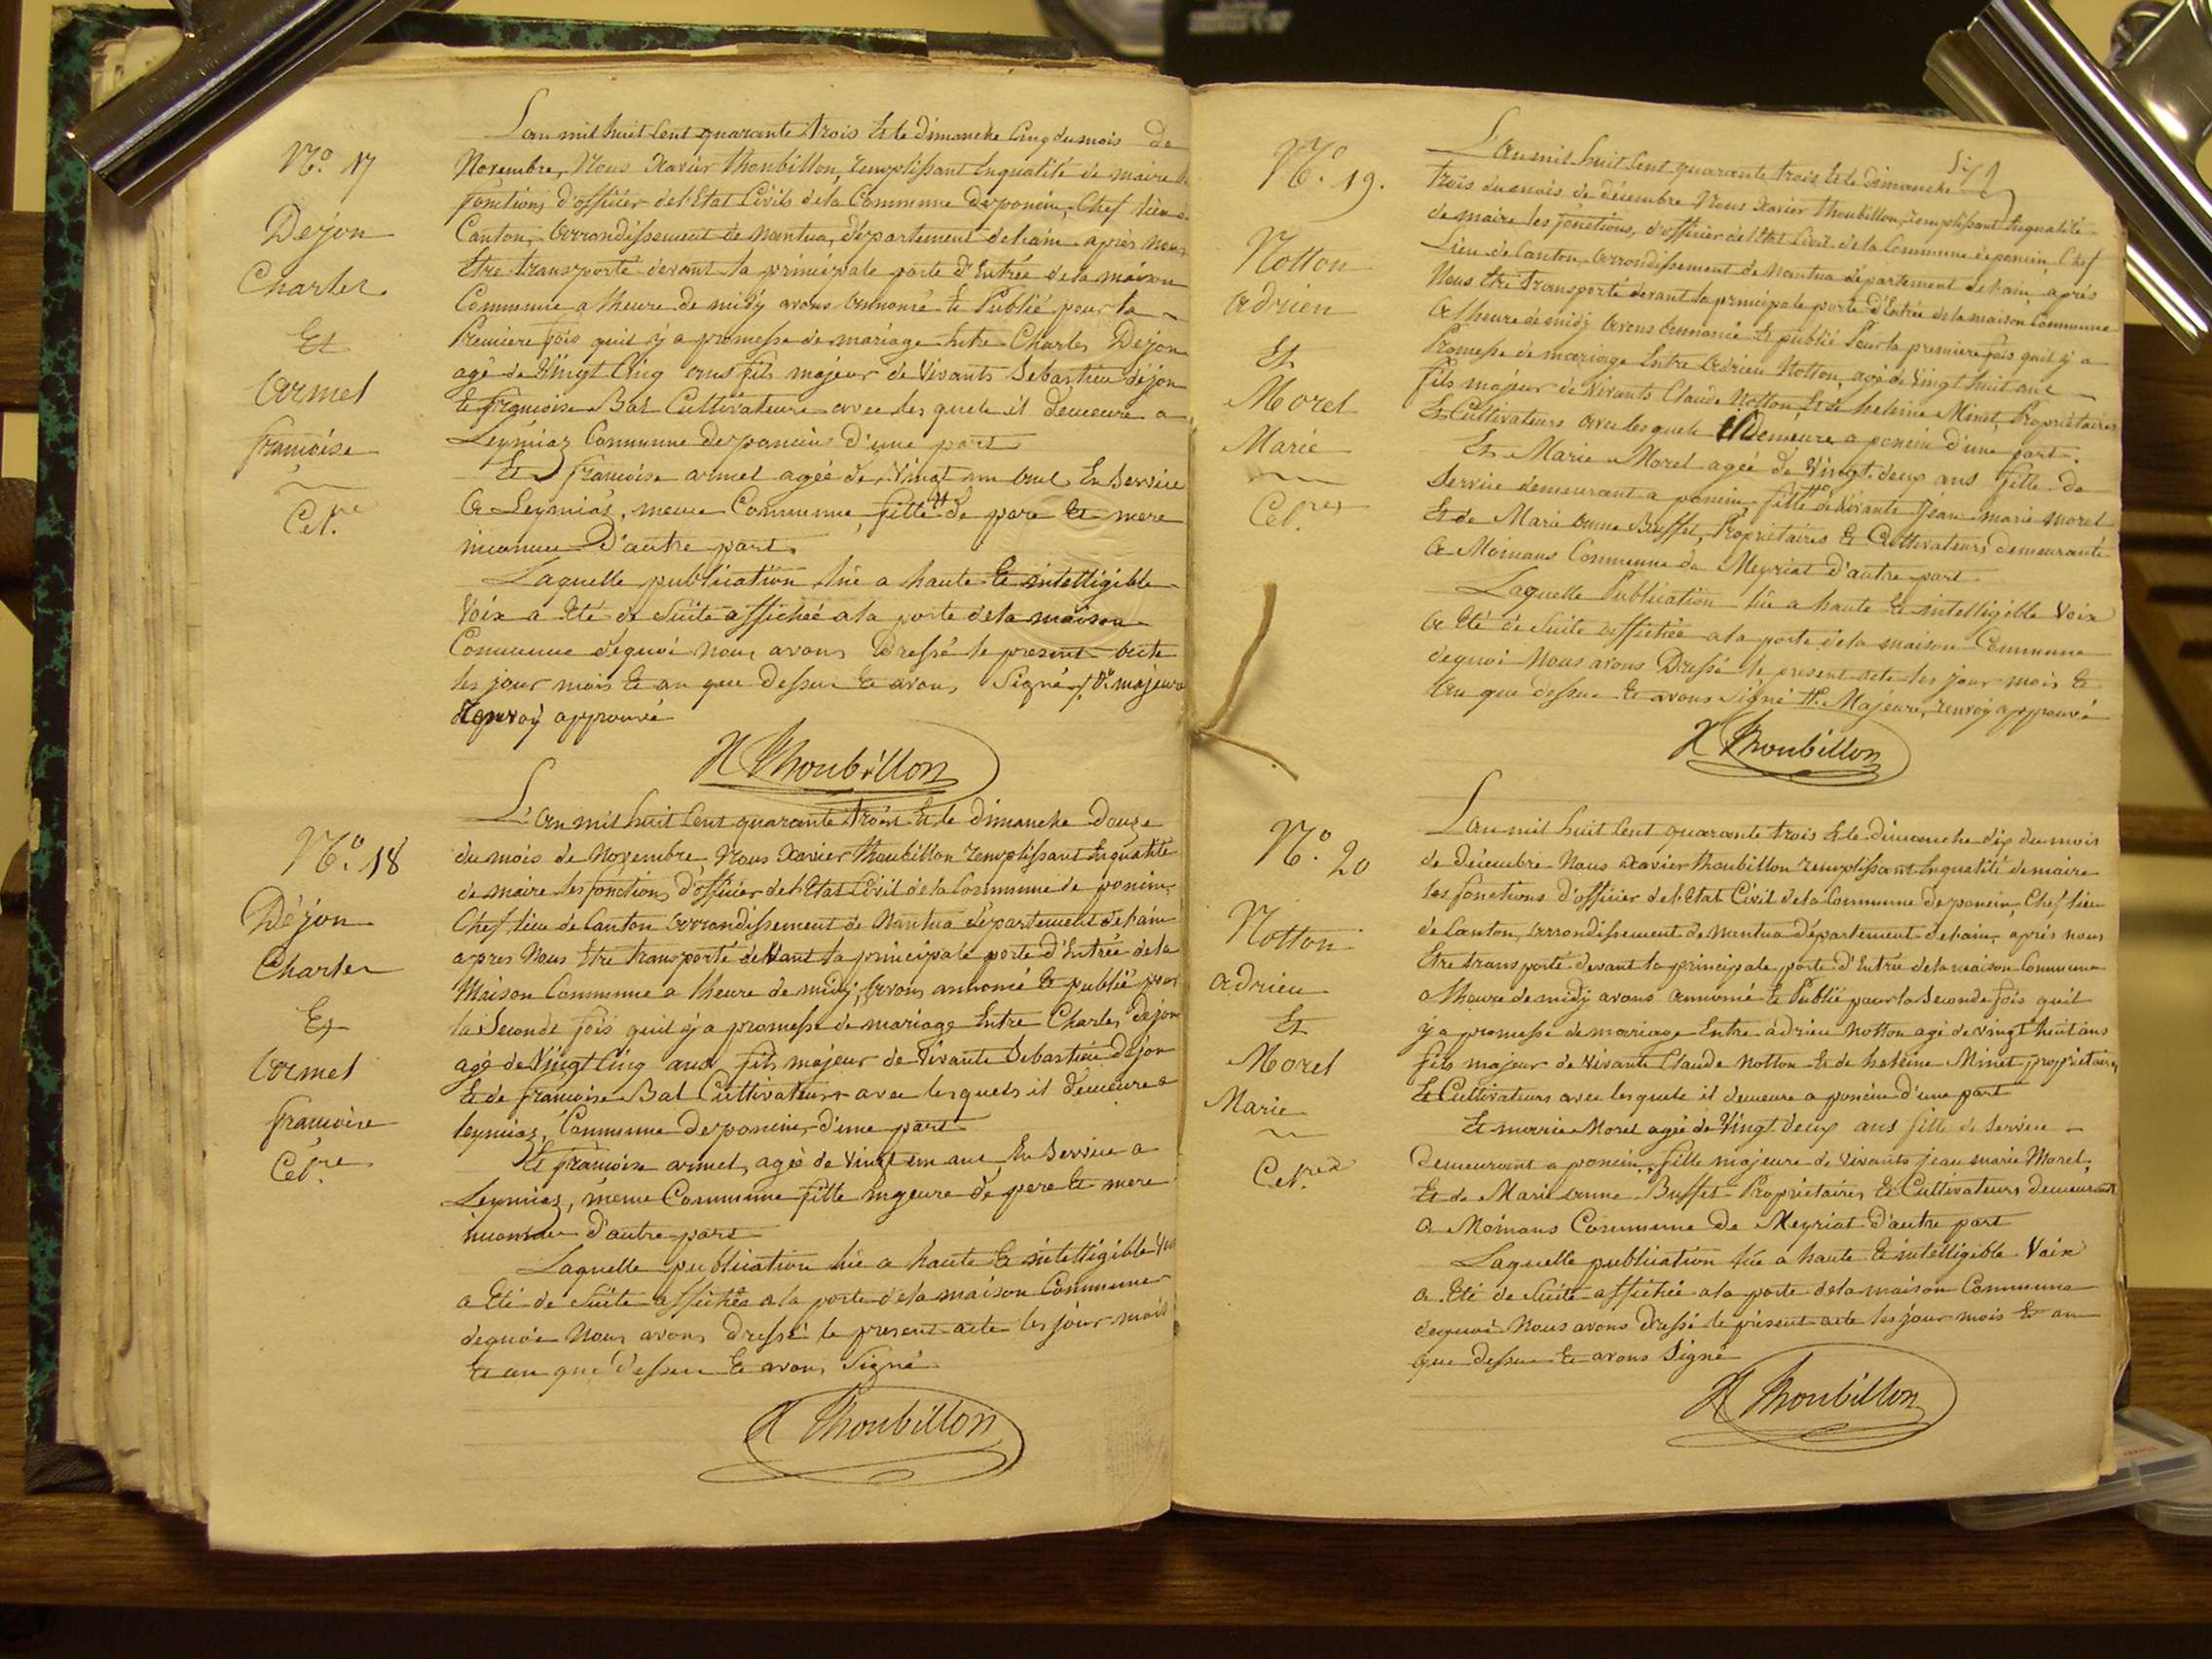 N.o 17
Dejon
Charles
Et
Armel
françoise
Cel.re
L'an mil huit Cent quarante trois Et le dimanche Cinq du mois de
Novembre, Nous Xavier Thoubillon, remplissant En qualité de maire les
fonctions d'officier de l'Etat Civils de la Commune de poncin, Chef lieu de
Canton, Arrondissement de Nantua, département de l'ain après Nous
Etre transporté devant la principale porte d'Entrée de la maison
Commune a l'heure de midy avons Annoncé Et Publié pour la
Premiere fois quil y a promesse de mariage Entre Charles Dejon
agé de Vingt Cinq ans fils majeur de Vivants Sebastien dejon
Et françoise Bal Cultivateurs avec les quels il demeure a
Leymiaz Commune de poncin d'une part
Et françoise armel agée de Vingt un ans En Service
A Leymias, meme Commune, fille # de pere Et mere
inconnu D'autre part.
Laquelle publication lüe a haute Et intelligible
Voix a Eté de Suite affichée a la porte de la maison
Commune dequoi Nous avons Dressé le present Acte
les jour mois Et an que dessus Et avons Signé #. majeure
Renvoy approuvé
X Thoubillon
N.o 18
Déjon
Charles
Et
Armel
françoise
Cel.re
L'An mil huit Cent quarante trois Et le dimanche Douze
du mois de Novembre, Nous Xavier Thoubillon remplissant En qualité
de maire les fonctions d'officier de l'Etat Civil de la Commune de poncin,
Chef lieu de Canton Arrondissement de Nantua département de l'ain
apres Nous Etre transporté devant la principale porte d'Entrée de la
Maison Commune a l'heure de midy, Avons annoncé Et publié pour
la Seconde fois quil y a promesse de mariage Entre Charles Dejon
agé de Vingt Cinq ans fils majeur de Vivants Sebastien Dejon
Et de françoise Bal Cultivateurs avec les quels il demeure a
leymiaz, Commune de poncin, d'une part
Et françoise armel, agée de Vingt un ans, En Service a
Leymias, meme Commune fille majeure de pere Et mere
inconnu d'autre part
Laquelle publication lüe a haute Et intelligible Voix
a Eté de Suite affichée a la porte de la maison Commune
dequoi Nous avons dressé le present acte les jour mois
Et an que dessus Et avons Signé
X Thoubillon
N.o 19.
Notton
adrien
Et
Morel
Marie
Cel.res
L'An mil huit Cent quarante trois Et le dimanche
trois du mois de décembre Nous Xavier Thoubillon, remplissant En qualité
de maire les fonctions, d'officier de l'Etat Civil de la Commune de poncin Chef
Lieu de Canton, Arrondissement de Nantua département de l'ain, après
Nous Etre transporté devant la principale porte d'Entrée de la maison Commune
A l'heure de midy Avons Annoncé Et publié Pour la premiere fois quil y a
Promesse de mariage Entre Adrien Notton, agé de Vingt huit ans
fils majeur de Vivants Claude Notton Et de heleine Minet, Propriétaires
Et Cultivateurs avec les quels il Demeure a poncin d'une part.
Et Marie Morel agée de Vingt deux ans fille de
Service demeurant a poncin, fille # de Vivants Jean marie morel
Et de Marie Anne Buffet, Propriétaires Et Cultivateurs demeurants
A Moinans Commune de Meyriat d'autre part
Laquelle Publication lüe a haute Et intelligible Voix
A Eté de Suite Affichée a la porte de la maison Commune
dequoi Nous avons Dressé le present acte les jour mois Et
An que dessus Et avons Signé #. Majeure, renvoy approuvé
X Thoubillon
N.o 20
Notton
adrien
Et
Morel
Marie
Cel.res
L'An mil huit Cent quarante trois Et le dimanche dix du mois
de décembre Nous Xavier Thoubillon remplissant En qualité de maire
les fonctions d'officier de l'Etat Civil de la Commune de poncin, Chef lieu
de Canton, Arrondissement de Nantua département de l'ain, après nous
Etre transporté devant la principale porte d'Entrée de la maison Commune
a l'heure de midy avons Annoncé Et Publié pour la Seconde fois quil
y a promesse de mariage Entre adrien Notton agé de vingt huit ans
fils majeur de Vivants Claude Notton Et de heleine Minet propriétaires
Et Cultivateurs avec les quels il demeure a poncin d'une part
Et marie Morel agée de Vingt deux ans fille de Service
Demeurant a poncin, fille majeure de Vivants jean marie Morel,
Et de Marie Anne Buffet Propriétaires Et Cultivateurs demeurant
A Moinans Commune de Meyriat d'autre part
Laquelle publication lüe a haute Et intelligible Voix
A Eté de Suite affichée a la porte de la maison Commune
dequoi Nous avons Dressé le présent acte les jour mois Et an
que dessus Et avons Signé
X Thoubillon